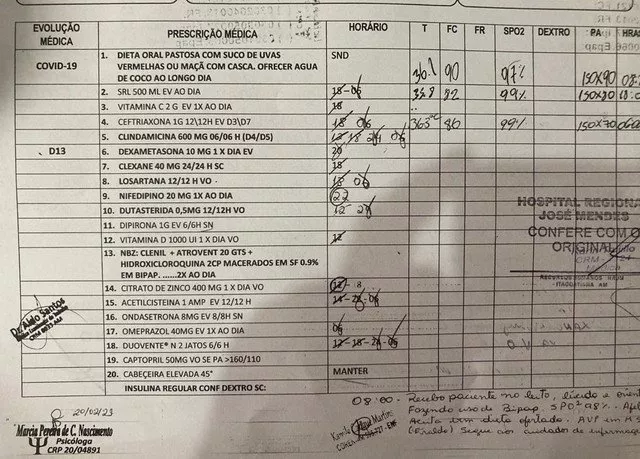 EVOLUÇÃO MÉDICA PRESCRIÇÃO MÉDICA HORÁRIO T FC FR SPO2 DEXTRO PA HRAS
COVID-19
1. DIETA ORAL PASTOSA COM SUCO DE UVAS SND
VERMELHAS OU MAÇÃ COM CASCA. OFERECER AGUA
DE COCO AO LONGO DIA 36.1 90 97% 150X90 08:
2. SRL 500 ML EV AO DIA 18-06 82 99% 150X80 18:0
3. VITAMINA C 2 G EV 1X AO DIA 18
4. CEFTRIAXONA 1G 12\12H EV D3\D7 18 06 86 99% 150X70 060
5. CLINDAMICINA 600 MG 06/06 H (D4/D5) 12 18 24 06
D13 6. DEXAMETASONA 10 MG 1 X DIA EV 20
7. CLEXANE 40 MG 24/24 H SC 18
8. LOSARTANA 12/12 H VO 18 06
9. NIFEDIPINO 20 MG 1X AO DIA 22
10. DUTASTERIDA 0,5MG 12/12H VO 12-24
11. DIPIRONA 1G EV 6/6H SN
12. VITAMINA D 1000 UI 1 X DIA VO 12
13. NBZ: CLENIL + ATROVENT 20 GTS +
HIDROXICLOROQUINA 2CP MACERADOS EM SF 0.9%
EM BIPAP. ......2X AO DIA
14. CITRATO DE ZINCO 400 MG 1 X DIA VO 12
15. ACETILCISTEINA 1 AMP EV 12/12 H
16. ONDASETRONA 8MG EV 8/8H SN
17. OMEPRAZOL 40MG EV 1X AO DIA 06
18. DUOVENTE® N 2 JATOS 6/6 H 12-18-24-06
19. CAPTOPRIL 50MG VO SE PA >160/110
20. CABEÇEIRA ELEVADA 45° MANTER
INSULINA REGULAR CONF DEXTRO SC:
HOSPITAL REGIONA
JOSÉ MENDES
CONFERE COM O
ORIGINAL
RECURSOS HUMANOS
ITACOATIARA AM
Dr. Aldo Santos
20/02/23
Marcia Pereira de C. Nascimento
Psicóloga
CRP 20/04891
08:00 - Recebo paciente no leito, lúcido e orient
Fazendo uso de Bipap. SPO² 98%.
Aceita bem dieta ofertada. AVP em
Segue aos cuidados de enfermag